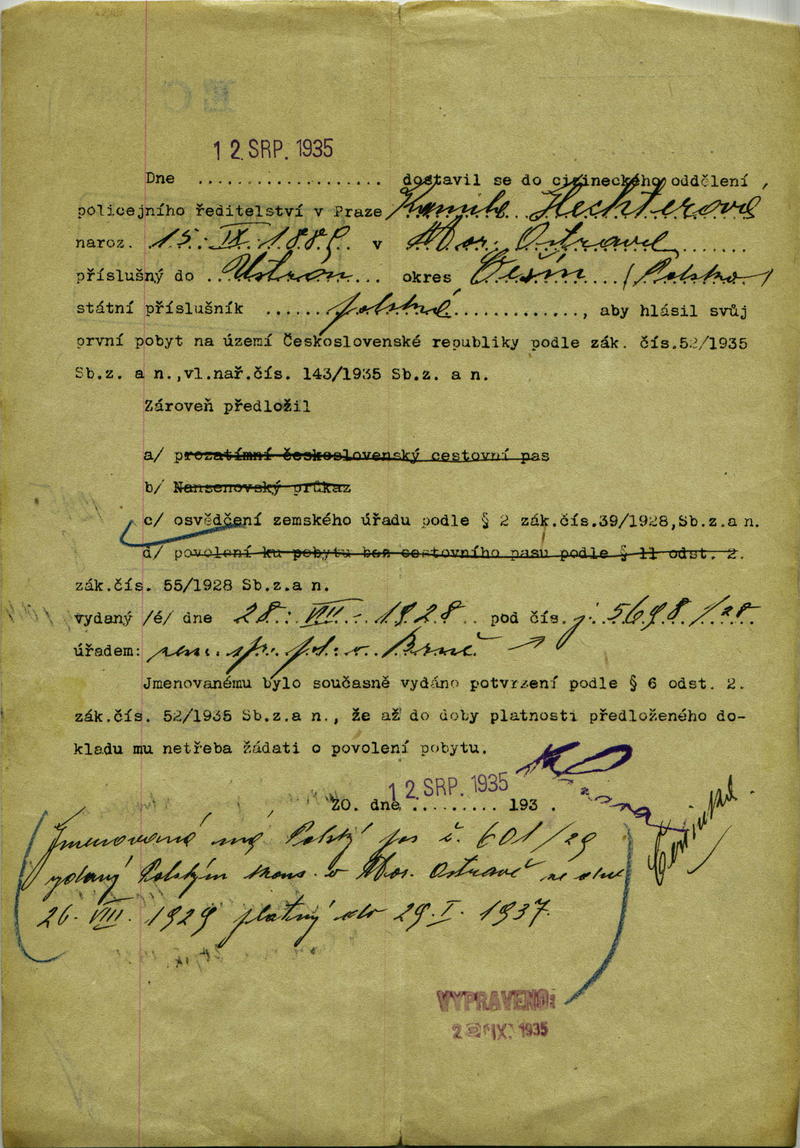 12. SRP. 1935
Dne .................. dostavil se do cizineckého oddělení
policejního ředitelství v Praze Kamila Hechterová
naroz. 15. IX. 1889 v Mor. Ostravě
příslušný do Ustroň okres Česín (Polsko)
státní příslušník polská, aby hlásil svůj
první pobyt na území Československé republiky podle zák. čís.52/1935
Sb.z. a n.,vl.nař.čís. 143/1935 Sb.z. a n.
Zároveň předložil
a/ prozatímní československý cestovní pas
b/ Nansenovský průkaz
c/ osvědčení zemského úřadu podle § 2 zák.čís.39/1928,Sb.z.a n.
d/ povolení ku pobytu bez cestovního pasu podle § 11 odst. 2.
zák.čís. 55/1928 Sb.z.a n.
vydaný /é/ dne 28. VIII. 1928 pod čís. j. 5698/28
úřadem: zem. sp. pol. v Brně
Jmenovanému bylo současně vydáno potvrzení podle § 6 odst. 2.
zák.čís. 52/1935 Sb.z.a n., že až do doby platnosti předloženého do-
kladu mu netřeba žádati o povolení pobytu.
12. SRP. 1935
ŽO. dne ......... 193 .
Jmenovaná má Polský pas č. 601/29
vydaný Polským kons. v Mor. Ostravě ze dne
26. VIII. 1929 platný do 29. I. 1937.
VYPRAVENO:
IX. 1935